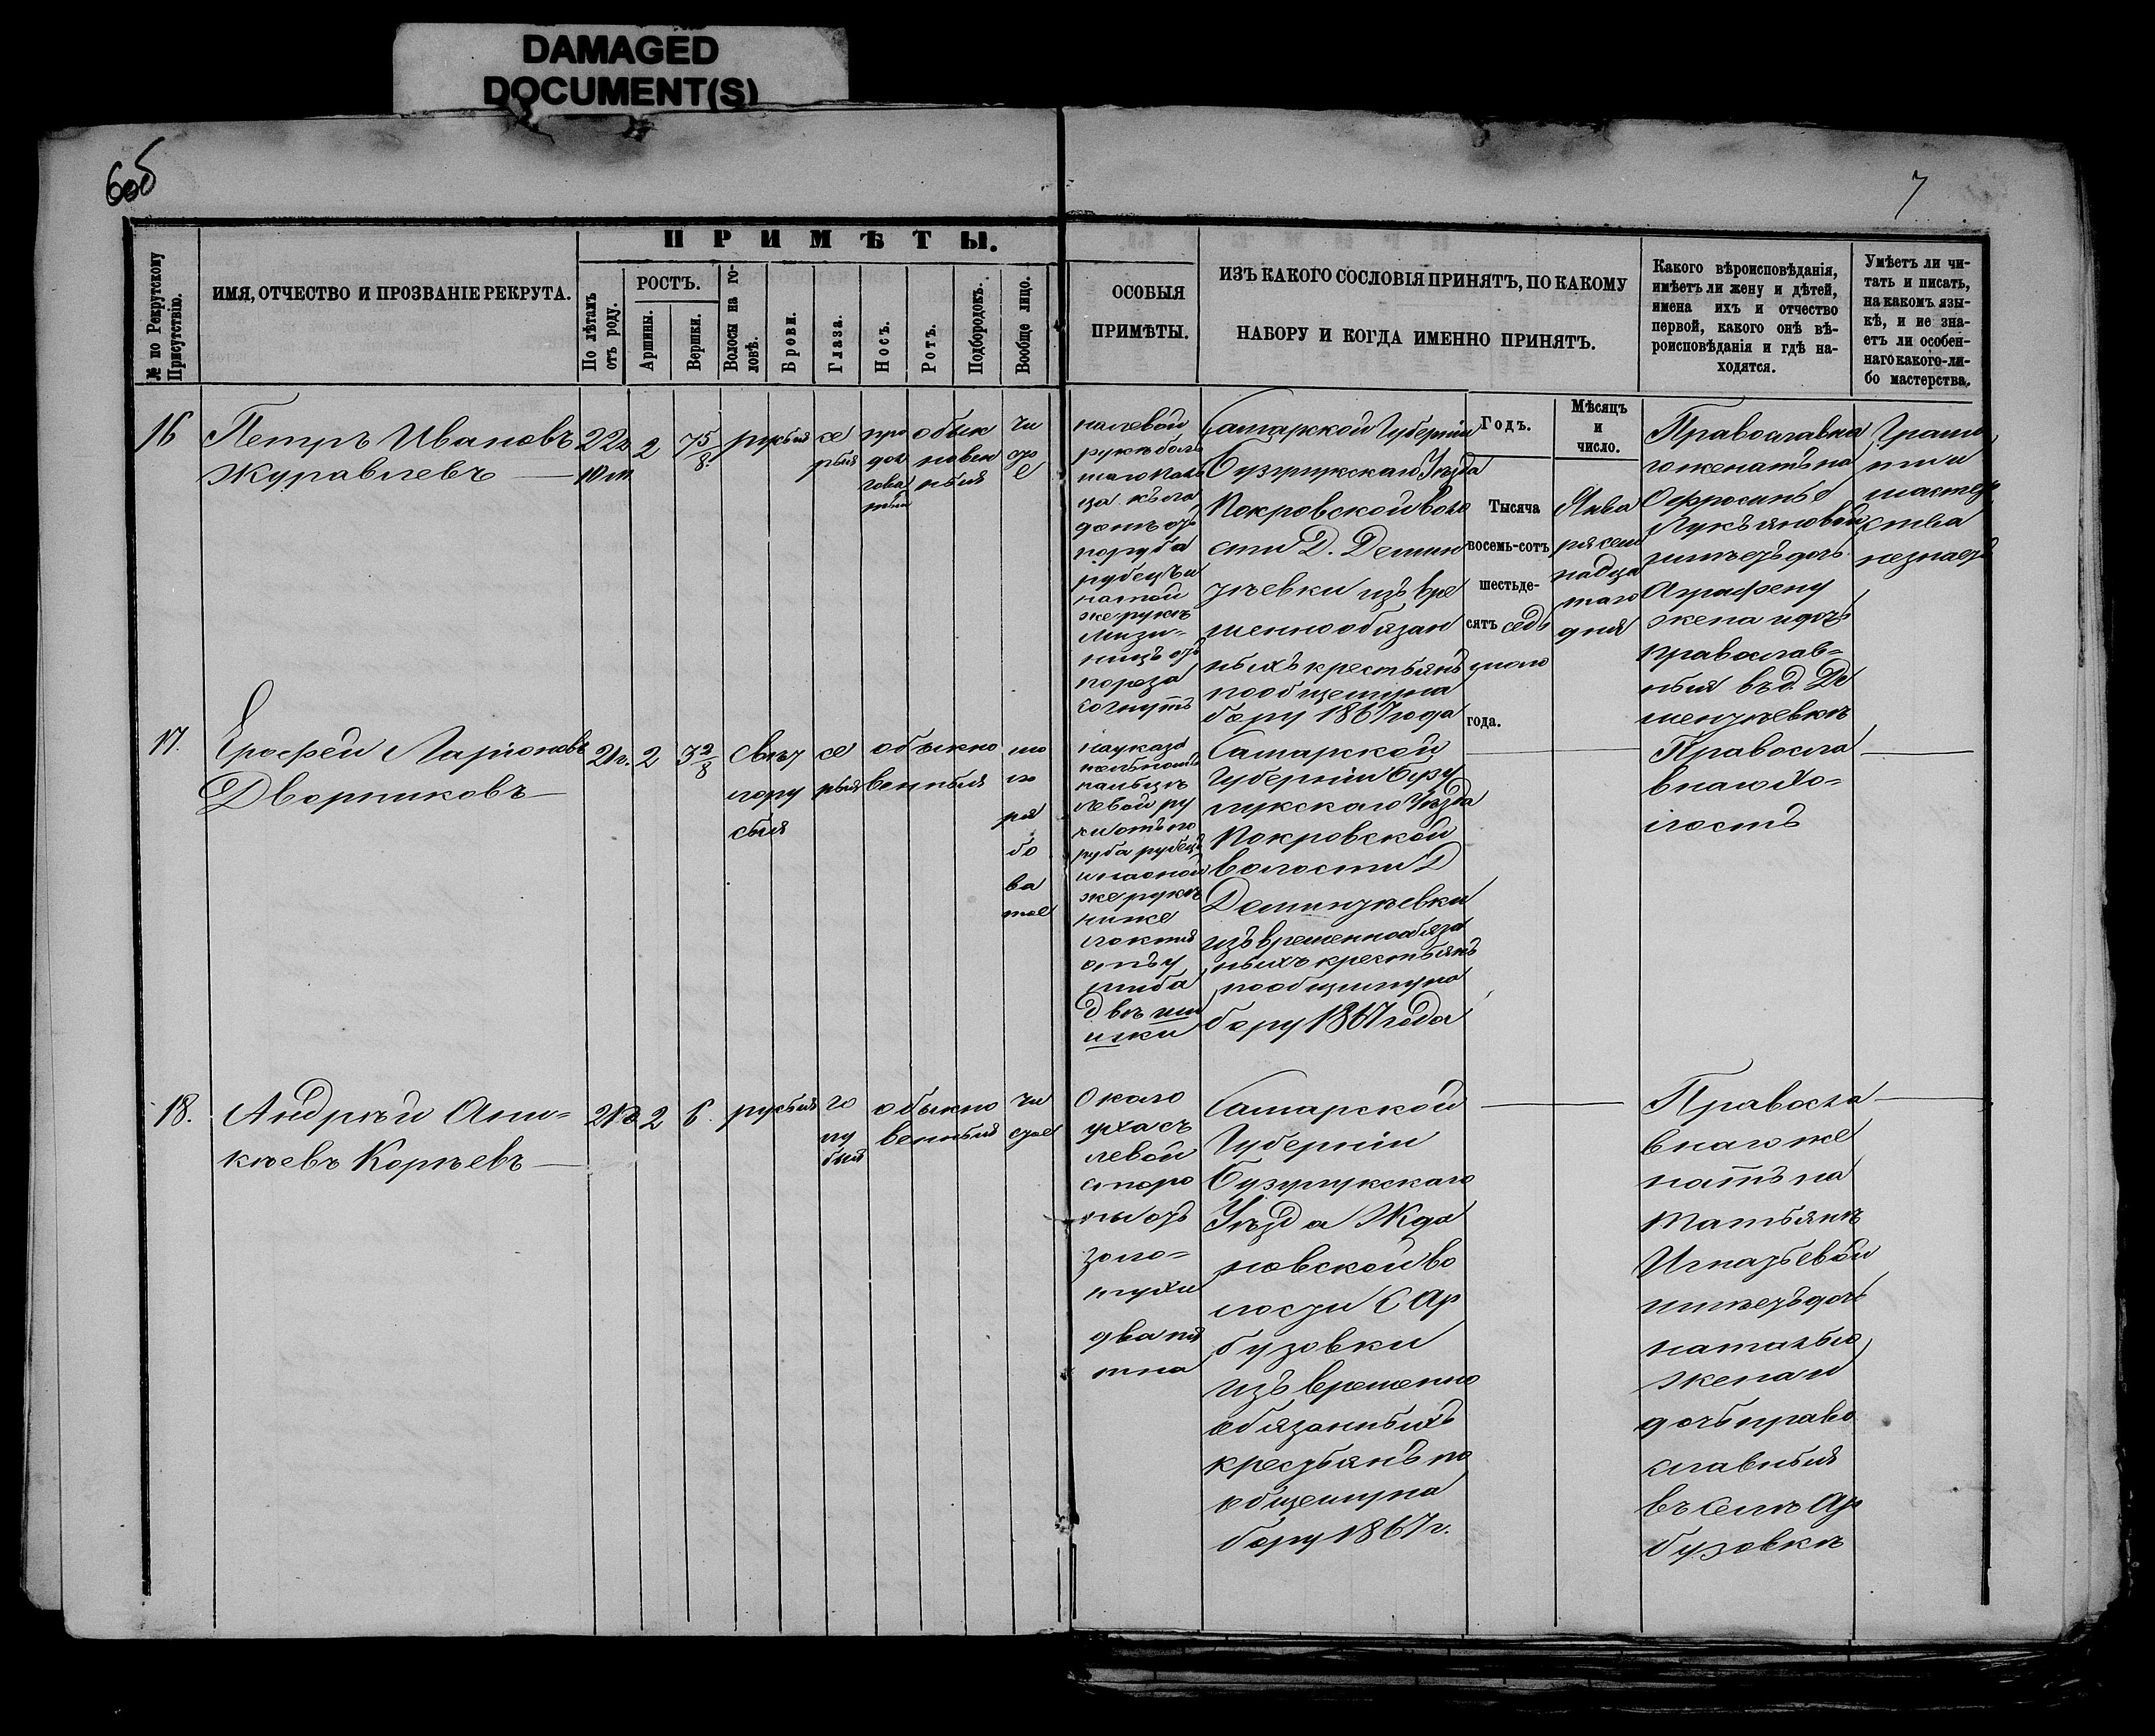 DAMAGED
DOCUMENT(S)
6об
7
№ по Рекрутскому Присутствію.
ИМЯ, ОТЧЕСТВО И ПРОЗВАНІЕ РЕКРУТА.
ПРИМѢТЫ.
По лѣтамъ отъ роду.
РОСТЪ.
Аршины.
Вершки.
Волосы на го-
ловѣ.
Брови.
Глаза.
Носъ.
Ротъ.
Подбородокъ.
Вообще лицо.
ОСОБЫЯ
ПРИМѢТЫ.
ИЗЪ КАКОГО СОСЛОВІЯ ПРИНЯТЪ, ПО КАКОМУ
НАБОРУ И КОГДА ИМЕННО ПРИНЯТЪ.
Какого вѣроисповѣданія,
имѣетъ ли жену и дѣтей,
имена ихъ и отчество
первой, какого онѣ вѣ-
роисповѣданія и гдѣ на-
ходятся.
Умѣетъ ли чи-
тать и писать,
на какомъ язы-
кѣ, и не зна-
етъ ли особен-
наго какого-ли-
бо мастерства.
16
Петръ Ивановъ
Журавлевъ
22г
10 м
2
7 5/8
русыя
се
рыя
про
дол
гова
тый
обык
новен
ныя
чи
сто
е
на левой
руке боль
шаго паль
ца къ ла
дони отъ
поруба
рубецъ и
на той
же рукѣ
мизи-
нецъ отъ
пореза
согнутъ
Самарской Губерніи
Бузулукскаго Уѣзда
Покровской воло
сти Д. Демин
зѣевки изъ вре
менно обязан
ныхъ крестьянъ
по общему на
бору 1867 года
Годъ.
Тысяча
восемь-сотъ
шестьде-
сятъ седь
маго
года.
Мѣсяцъ
и
число.
Янва
ря сем
надца
таго
дня
Православна
го женатъ на
Офросинье
Лукъяновой
имѣетъ дочь
Аграфену
жена и дочь
православ-
ныя въ д. Де
мензѣевкѣ
Грамо
ты и
мастер
ства
незнаетъ
17.
Ерофей Ларіоновъ
Дворниковъ
21г.
2
3 2/8
Свѣт
лору
сыя
се
рыя
обыкно
венныя
шо
ло
ря
до
ва
тое
на указа
тельномъ
пальцѣ
левой ру
ки отъ по
руба рубецъ
и на оной
же рукѣ
ниже
локтя
отъ у
шиба
двѣ ши
шки
Самарской
Губерніи Бузу
лукскаго Уѣзда
Покровской
волости Д
Деминзѣевки
изъ временнообяза
ныхъ крестьянъ
по общему на
бору 1867 года
Правосла
внаго Хо-
лостъ
18.
Андрѣй Ани-
кѣевъ Корнѣевъ
21г.
2
6.
русыя
го
лу
быя
обыкно
венныя
чи
стое
Около
уха съ
левой
сторо
ны отъ
золо-
тухи
два пя
тна
Самарской
Губерніи
Бузулукскаго
Уѣзда Жда
новской во
лости С Ар
бузовки
изъ временно
обязанныхъ
крестьянъ по
общему на
бору 1867 г.
Правосла
внаго же
натъ на
Татьянѣ
Игнатьевой
имѣетъ дочь
Наталью
жена и
дочь право
славныя
въ селѣ Ар
бузовкѣ